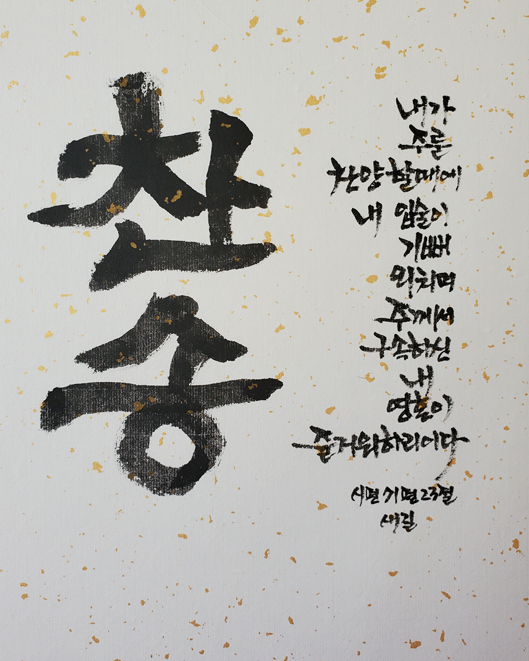 찬
송
내가
주를
찬양할때에
내 입술이
기뻐
외치며
주께서
구속하신
내
영혼이
즐거워하리이다
시편 71편 23절
새길